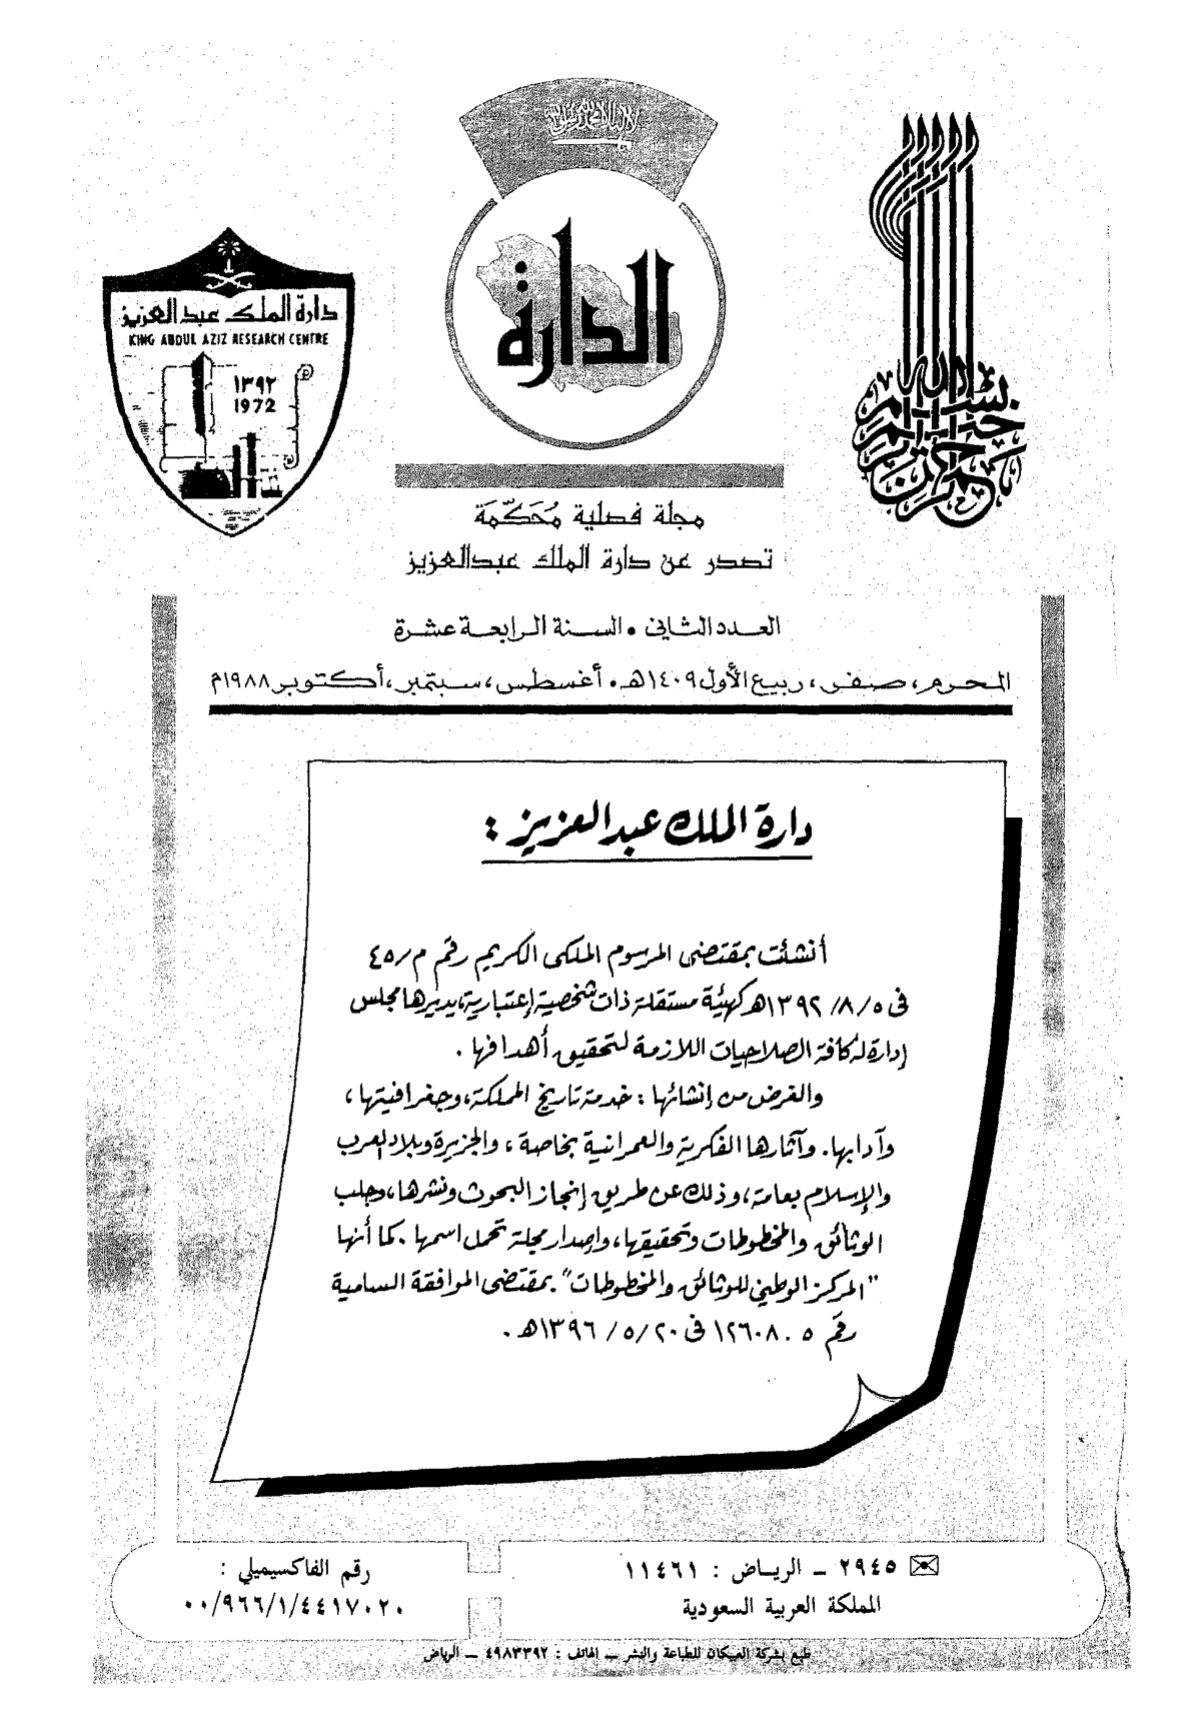 لا إله إلا الله محمد رسول الله
الدارة
بسم الله الرحمن الرحيم
دارة الملك عبد العزيز
KING ABDUL AZIZ RESEARCH CENTRE
١٣٩٢
1972
مجلة فصلية مُحَكّمَة
تصدر عن دارة الملك عبدالعزيز
العدد الثاني • السنة الرابعة عشرة
المحرم، صفر، ربيع الأول ١٤٠٩هـ • أغسطس، سبتمبر، أكتوبر ١٩٨٨م
دارة الملك عبد العزيز :
أنشئت بمقتضى المرسوم الملكى الكريم رقم م/٤٥
فى ٥/ ٨/ ١٣٩٢هـ كهيئة مستقلة ذات شخصية إعتبارية، يديرها مجلس
إدارة له كافة الصلاحيات اللازمة لتحقيق أهدافها .
والغرض من إنشائها : خدمة تاريخ المملكة، وجغرافيتها،
وآدابها. وآثارها الفكرية والعمرانية بخاصة، والجزيرة وبلاد العرب
والإسلام بعامة، وذلك عن طريق إنجاز البحوث ونشرها، وجلب
الوثائق والمخطوطات وتحقيقها، وإصدار مجلة تحمل اسمها. كما أنها
"المركز الوطني للوثائق والمخطوطات". بمقتضى الموافقة السامية
رقم ٥ . ١٢٦٠٨ فى ٢٠ /٥/ ١٣٩٦هـ .
٢٩٤٥ ــ الرياض : ١١٤٦١
المملكة العربية السعودية
رقم الفاكسيميلي :
٠٠/٩٦٦/١/٤٤١٧٠٢٠
طبع بشركة العبيكان للطباعة والنشر ــ الهاتف : ٤٩٨٣٣٩٢ ــ الرياض